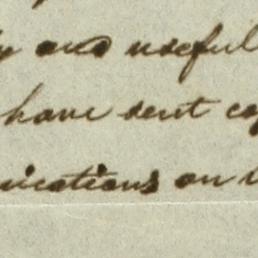 y and useful
have sent co
nications on